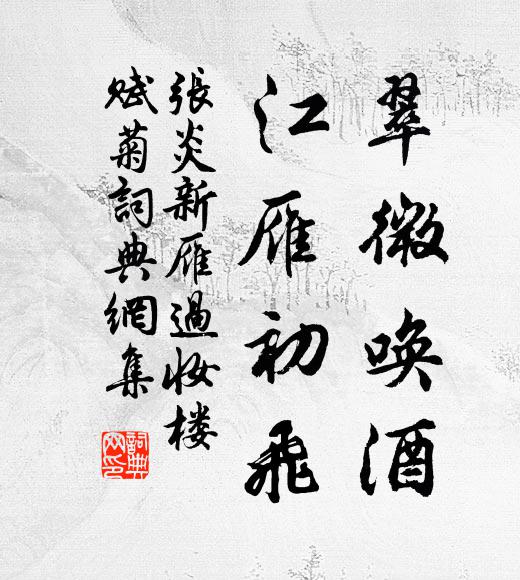 翠微喚酒
江雁初飛
張炎新雁過妝楼
賦菊詞典網集
詞典網印